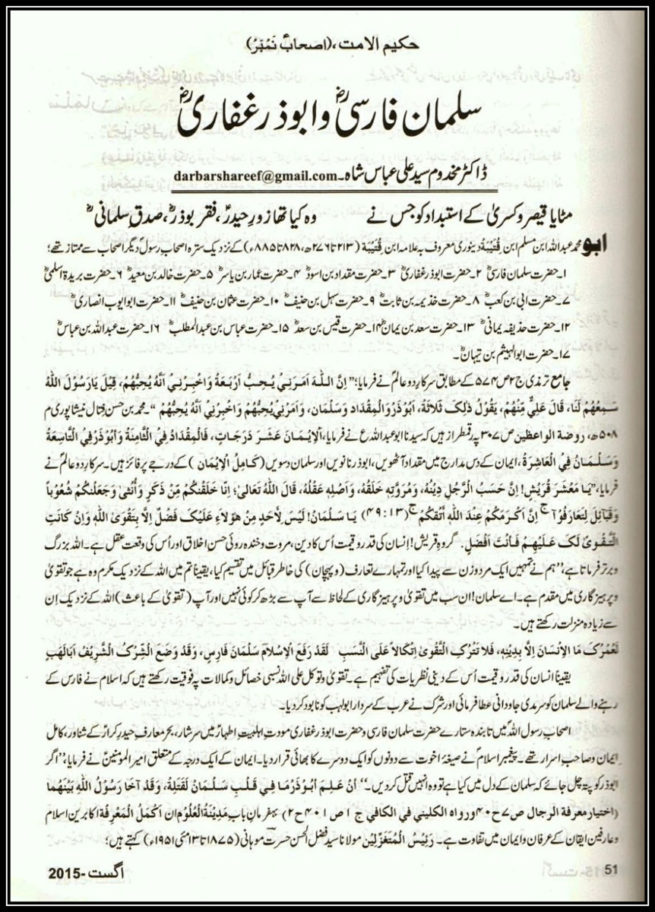 حکیم الامت، (اصحابؓ نمبر)
سلمان فارسیؓ و ابوذر غفاریؓ
ڈاکٹر مخدوم سید علی عباس شاہ۔ darbarshareef@gmail.com
مٹایا قیصر و کسریٰ کے استبداد کو جس نے وہ کیا تھا زورِ حیدرؓ، فقرِ بوذرؓ، صدقِ سلمانیؓ
ابو محمد عبداللہ ابن مسلم ابن قتیبہ دینوری معروف بہ علامہ ابن قتیبہ (۲۱۳ تا ۲۷۶ھ، ۸۲۸ تا ۸۸۵ء) کے نزدیک سترہ اصحابِ رسولؐ دیگر اصحاب سے ممتاز تھے؛
۱۔ حضرت سلمان فارسیؓ ۲۔ حضرت ابوذر غفاریؓ ۳۔ حضرت مقداد بن اسودؓ ۴۔ حضرت عمار بن یاسرؓ ۵۔ حضرت خالد بن سعیدؓ ۶۔ حضرت بریدۃ اسلمیؓ
۷۔ حضرت ابی بن کعبؓ ۸۔ حضرت خذیمہ بن ثابتؓ ۹۔ حضرت سہل بن حنیفؓ ۱۰۔ حضرت عثمان بن حنیفؓ ۱۱۔ حضرت ابو ایوب انصاریؓ
۱۲۔ حضرت حذیفہ یمانیؓ ۱۳۔ حضرت سعد بن یمانؓ ۱۴۔ حضرت قیس بن سعدؓ ۱۵۔ حضرت عباس بن عبدالمطلبؓ ۱۶۔ حضرت عبداللہ بن عباسؓ
۱۷۔ حضرت ابوالہیثم بن تیہانؓ۔
جامع ترمذی ج ۲ ص ۵۷۴ کے مطابق سرکارِ دو عالمؐ نے فرمایا؛ "اِنَّ اللہَ اَمَرَنِی یُحِبُّ اَرْبَعَۃً وَاَخْبِرْنِیْ اَنَّہٗ یُحِبُّھُمْ، قِیْلَ یَارَسُوْلَ اللہِ
سَمِّھُمْ لَنَا، قَالَ عَلِیٌّ مِّنْھُمْ، یَقُوْلُ ذٰلِکَ ثَلَاثَۃً، اَبُوْذَرٍ وَالْمِقْدَادُ وَسَلْمَانُ، وَاَمَرَنِیْ یُحِبُّھُمْ وَاَخْبِرْنِیْ اَنَّہٗ یُحِبُّھُمْ"۔ محمد بن حسن فتال نیشاپوری م
۵۰۸ھ، روضۃ الواعظین ص ۳۰۷ پر رقمطراز ہیں کہ سیدنا ابو عبداللہ ع نے فرمایا، اَلْاِیْمَانُ عَشَرَ دَرَجَاتٍ، فَالْمِقْدَادُ فِی الثَّامِنَۃِ وَاَبُوْذَرٍ فِی التَّاسِعَۃِ
وَسَلْمَانُ فِی الْعَاشِرَۃِ، ایمان کے دس مدارج میں مقداد آٹھویں، ابوذر نانویں اور سلمان دسویں (کَامِلُ الْاِیْمَانِ) کے درجے پر فائز ہیں۔ سرکارِ دو عالمؐ نے
فرمایا، "یَا مَعْشَرَ قُرَیْشٍ! اِنَّ حَسَبَ الرَّجُلِ دِیْنُہٗ، وَمُرُوَّتِہٖ خَلْقُہٗ، وَاَصْلِہٖ عَقْلُہٗ، قَالَ اللہُ تَعَالیٰ؛ اِنَّا خَلَقْنٰکُمْ مِّنْ ذَکَرٍ وَّاُنْثٰی وَجَعَلْنٰکُمْ شُعُوْبًا
وَّقَبَآئِلَ لِتَعَارَفُوْا ؕ اِنَّ اَکْرَمَکُمْ عِنْدَ اللہِ اَتْقٰکُمْ (۴۹:۱۳) یَا سَلْمَانُ! لَیْسَ لِاَحَدٍ مِنْ ھٰؤُلَاءِ عَلَیْکَ فَضْلٌ اِلَّا بِتَقْوَی اللہِ وَاِنْ کَانَتِ
التَّقْوٰی لَکَ عَلَیْھِمْ فَاَنْتَ اَفْضَلُ۔ گروہِ قریش! انسان کی قدر و قیمت اُس کا دین، مروت و خندہ روئی حسنِ اخلاق اور اُس کی وقعت عقل ہے۔ اللہ بزرگ
و برتر فرماتا ہے، "ہم نے تمہیں ایک مرد و زن سے پیدا کیا اور تمہارے تعارف (و پہچان) کی خاطر قبائل میں تقسیم کیا، یقیناً تم میں اللہ کے نزدیک مکرم وہ ہے جو تقویٰ
و پرہیزگاری میں مقدم ہے۔ اے سلمان! ان سب میں تقویٰ و پرہیزگاری کے لحاظ سے آپ سے بڑھ کر کوئی نہیں اور آپ (تقویٰ کے باعث) اللہ کے نزدیک اِن
سے زیادہ منزلت رکھتے ہیں۔
لَعَمْرُکَ مَا الْاِنْسَانُ اِلَّا بِدِیْنِہٖ، فَلَا تَتْرُکِ التَّقْوٰی اِتِّکَالًا عَلَی النَّسَبِ لَقَدْ رَفَعَ الْاِسْلَامُ سَلْمَانَ فَارِسٍ، وَقَدْ وَضَعَ الشِّرْکُ الشَّرِیْفَ اَبَالَھَبٍ
یقیناً انسان کی قدر و قیمت اُس کے دینی نظریات کی تفہیم ہے۔ تقویٰ و توکل علی اللہ نسبی خصائل و کمالات پہ فوقیت رکھتے ہیں کہ اسلام نے فارس کے
رہنے والے سلمان کو سرمدی جاودانی عطا فرمائی اور شرک نے عرب کے سردار ابولہب کو نابود کر دیا۔
اصحابِ رسول اللہؐ میں تابندہ ستارے حضرت سلمان فارسی و حضرت ابوذر غفاری مودتِ اہلبیتِ اطہارؑ میں سرشار، بحرِ معارفِ حیدرِ کرارؑ کے شناور، کامل
ایمان و صاحبِ اسرار تھے۔ پیغمبرِ اسلامؐ نے صیغۂ اخوت سے دونوں کو ایک دوسرے کا بھائی قرار دیا۔ ایمان کے ایک درجہ کے متعلق امیرالمومنینؑ نے فرمایا؛ "اگر
ابوذر کو پتہ چل جائے کہ سلمان کے دل میں کیا ہے تو وہ انہیں قتل کر دیں۔" اِنْ عَلِمَ اَبُوْذَرٍ مَا فِیْ قَلْبِ سَلْمَانَ لَقَتَلَہٗ، وَقَدْ آخَا رَسُوْلُ اللہِ بَیْنَھُمَا
(اختیار معرفۃ الرجال ص ۷ ح ۴۰ ورواہ الکلینی فی الکافی ج ۱ ص ۴۰۱ ح ۲) بہ فرمانِ باب مَدِیْنَۃُ الْعُلُوْمِ ان اَکْمَلُ الْمَعْرِفَۃِ اکابرینِ اسلام
و عارفینِ ایقان کے عرفان و ایمان میں تفاوت ہے۔ رَئِیْسُ الْمُتَغَزِّلِیْن مولانا سید فضل الحسن حسرتؔ موہانی (۱۸۷۵ تا ۱۳ مئی ۱۹۵۱ء) کہتے ہیں؛
اگست -2015 51